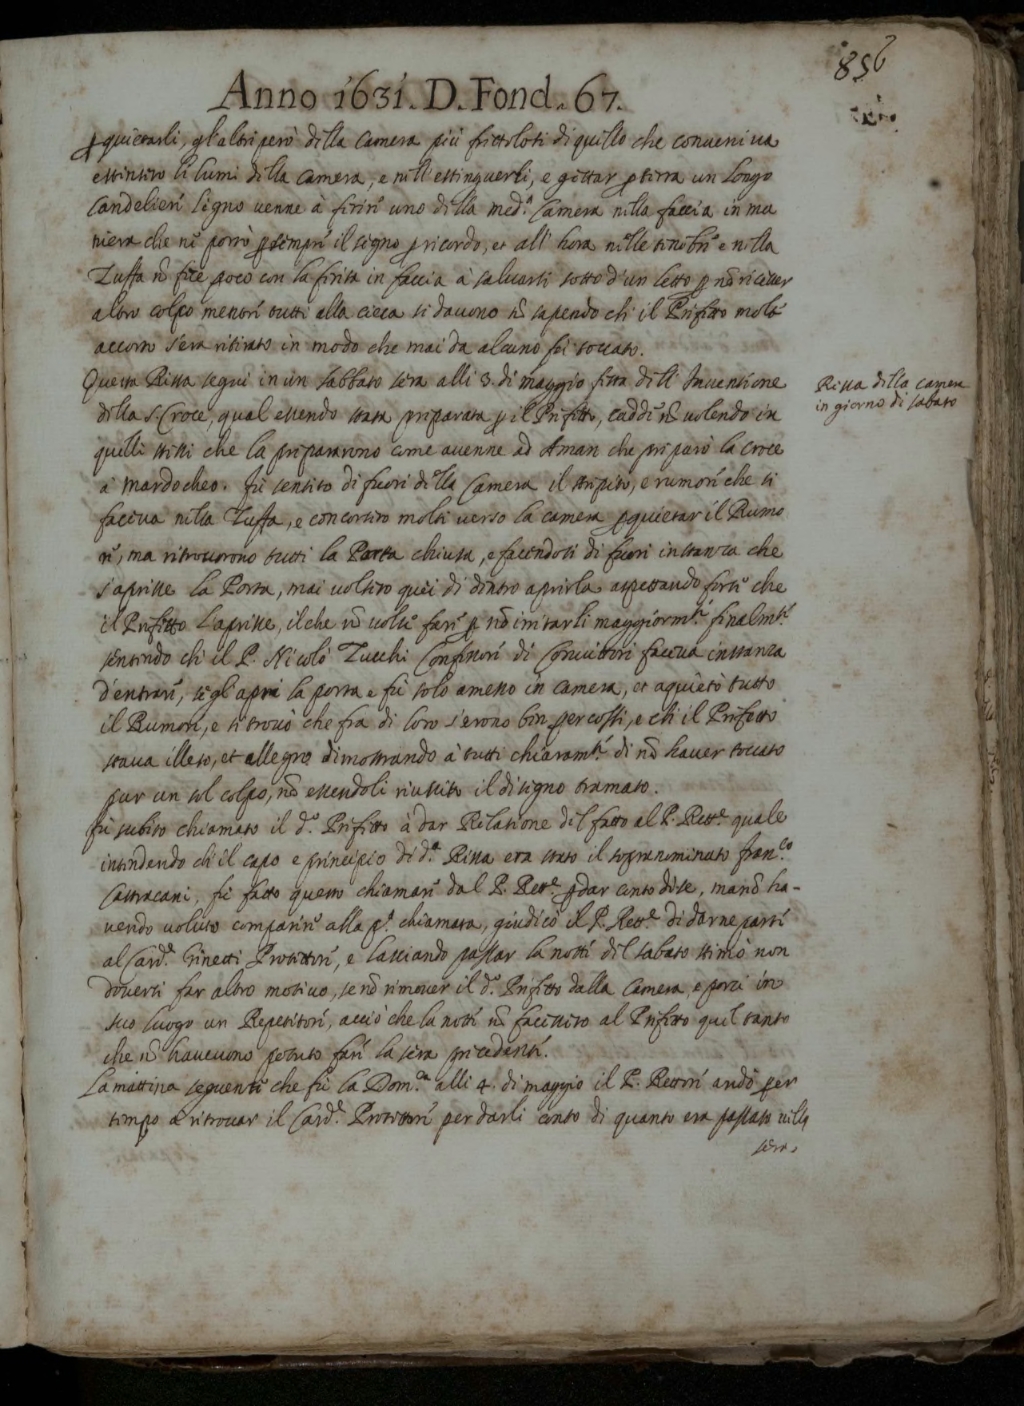 856
Anno 1631. D. Fond. 67.
ꝑ quietarli, gl'altri però della Camera più frettolosi di quello che conveniva
estinsero li lumi della Camera, e nell'estinguerli, e gettar ꝑ terra un longo
Candeliere ligno venne à ferire uno della med.ª Camera nella faccia in ma
niera che ne porrò ꝑ sempre il segno ꝑ ricordo, et all' hora nelle tenebre e nella
Zuffa nō fece poco con la ferita in faccia à salvarsi sotto d'un letto ꝑ nō ricever
altro colpo mentre tutti alla cieca si davono nō sapendo che il Prefetto molto
accorto s'era ritirato in modo che mai da alcuno fù toccato.
Questa Rissa segui in un sabbato sera alli 3. di maggio festa dell' Inventione
della S. Croce, qual essendo stata preparata ꝑ il Prefetto, cadde nō volendo in
quelli stessi che la prepararono come avenne ad Aman che preparò la croce
à Mardocheo. Fù sentito di fuori della Camera il strepito, e rumore che si
faceva nella Zuffa, e concorsero molti verso la camera ꝑ quietar il Rumo
re, ma ritrovorono tutti la Porta chiusa, e facendosi di fuori instanza che
s'aprisse la Porta, mai volsero quei di dentro aprirla aspettando forse che
il Prefetto l'aprisse, il che nō volse fare ꝑ nō irritarli maggiorm.te finalm.te
sentendo che il P. Nicolò Zucchi Confessore di Convittori faceva instanza
d'entrare, se gl'aprì la porta e fù solo amesso in camera, et aquietò tutto
il Rumore, e si trovò che fra di loro s'erono ben percossi, e che il Prefetto
stava illeso, et allegro dimostrando à tutti chiaram.te di nō haver toccato
pur un sol colpo, nō essendoli riuscito il disegno tramato.
Fù subito chiamato il d.º Prefetto à dar Relatione del fatto al P. Rett.e quale
intendendo che il capo e principio di d.ª Rissa era stato il sopranominato Fran.co
Castracani, fù fatto questo chiamare dal P. Rett.e ꝑ dar conto di se, ma nō ha-
vendo voluto comparire alla p.ª chiamata, giudicò il P. Rett.e di darne parte
al Card.e Ginetti Protettore, e lasciando passar la notte del sabato stimò non
doversi far altro motivo, se nō rimover il d.º Prefetto dalla Camera, e porci in
suo luogo un Repetitore, acciò che la notte nō facessero al Prefetto quel tanto
che nō havevono potuto fare la sera precedente.
La mattina seguente che fù la Dom.ca alli 4. di maggio il P. Rettore andò per
tempo à ritrovar il Card.e Protettore per darli conto di quanto era passato nella
sera.
Rissa della camera
in giorno di sabato